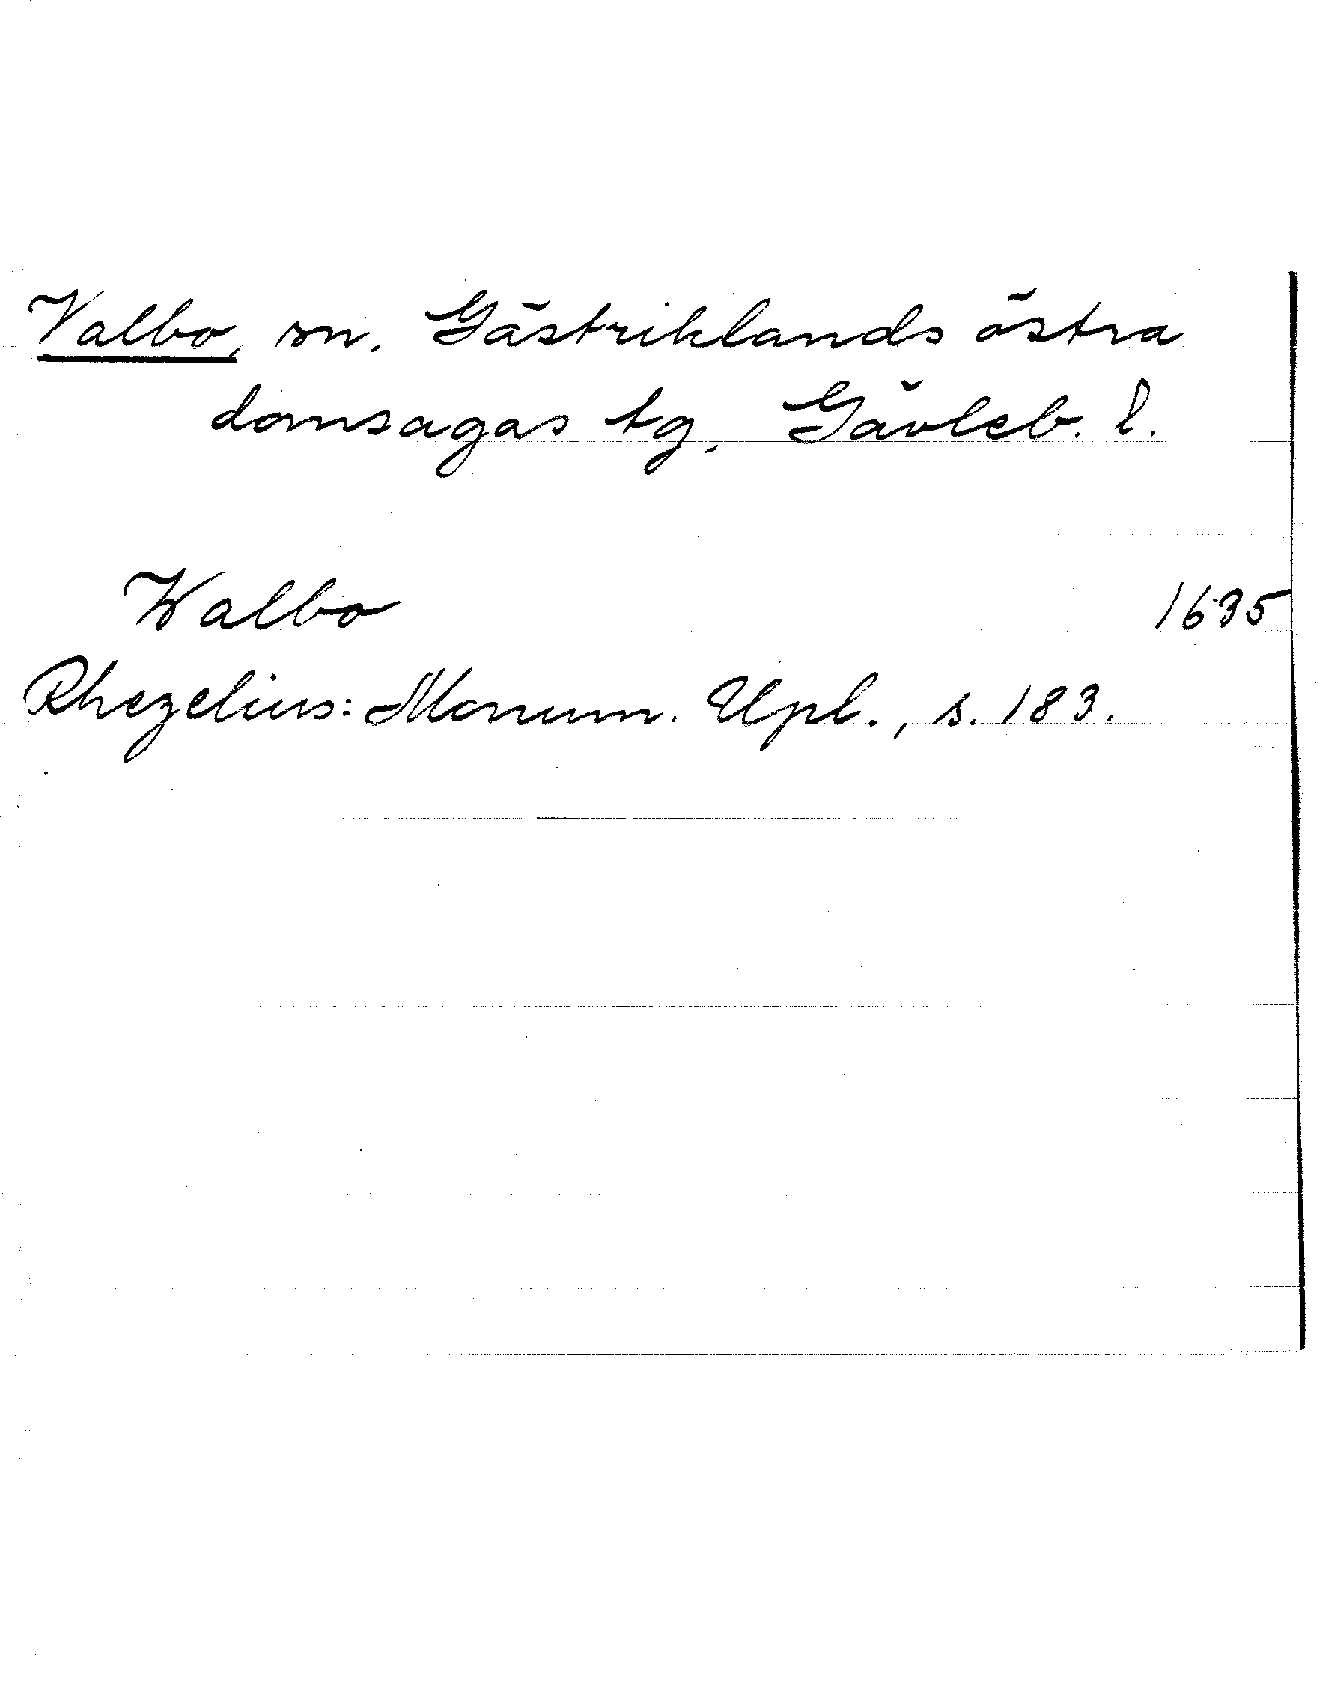 Valbo, sn. Gästriklands östra
domsagas tg, Gävleb. l.
Walbo 1635
Rhezelius: Monum. Upl., s. 183.